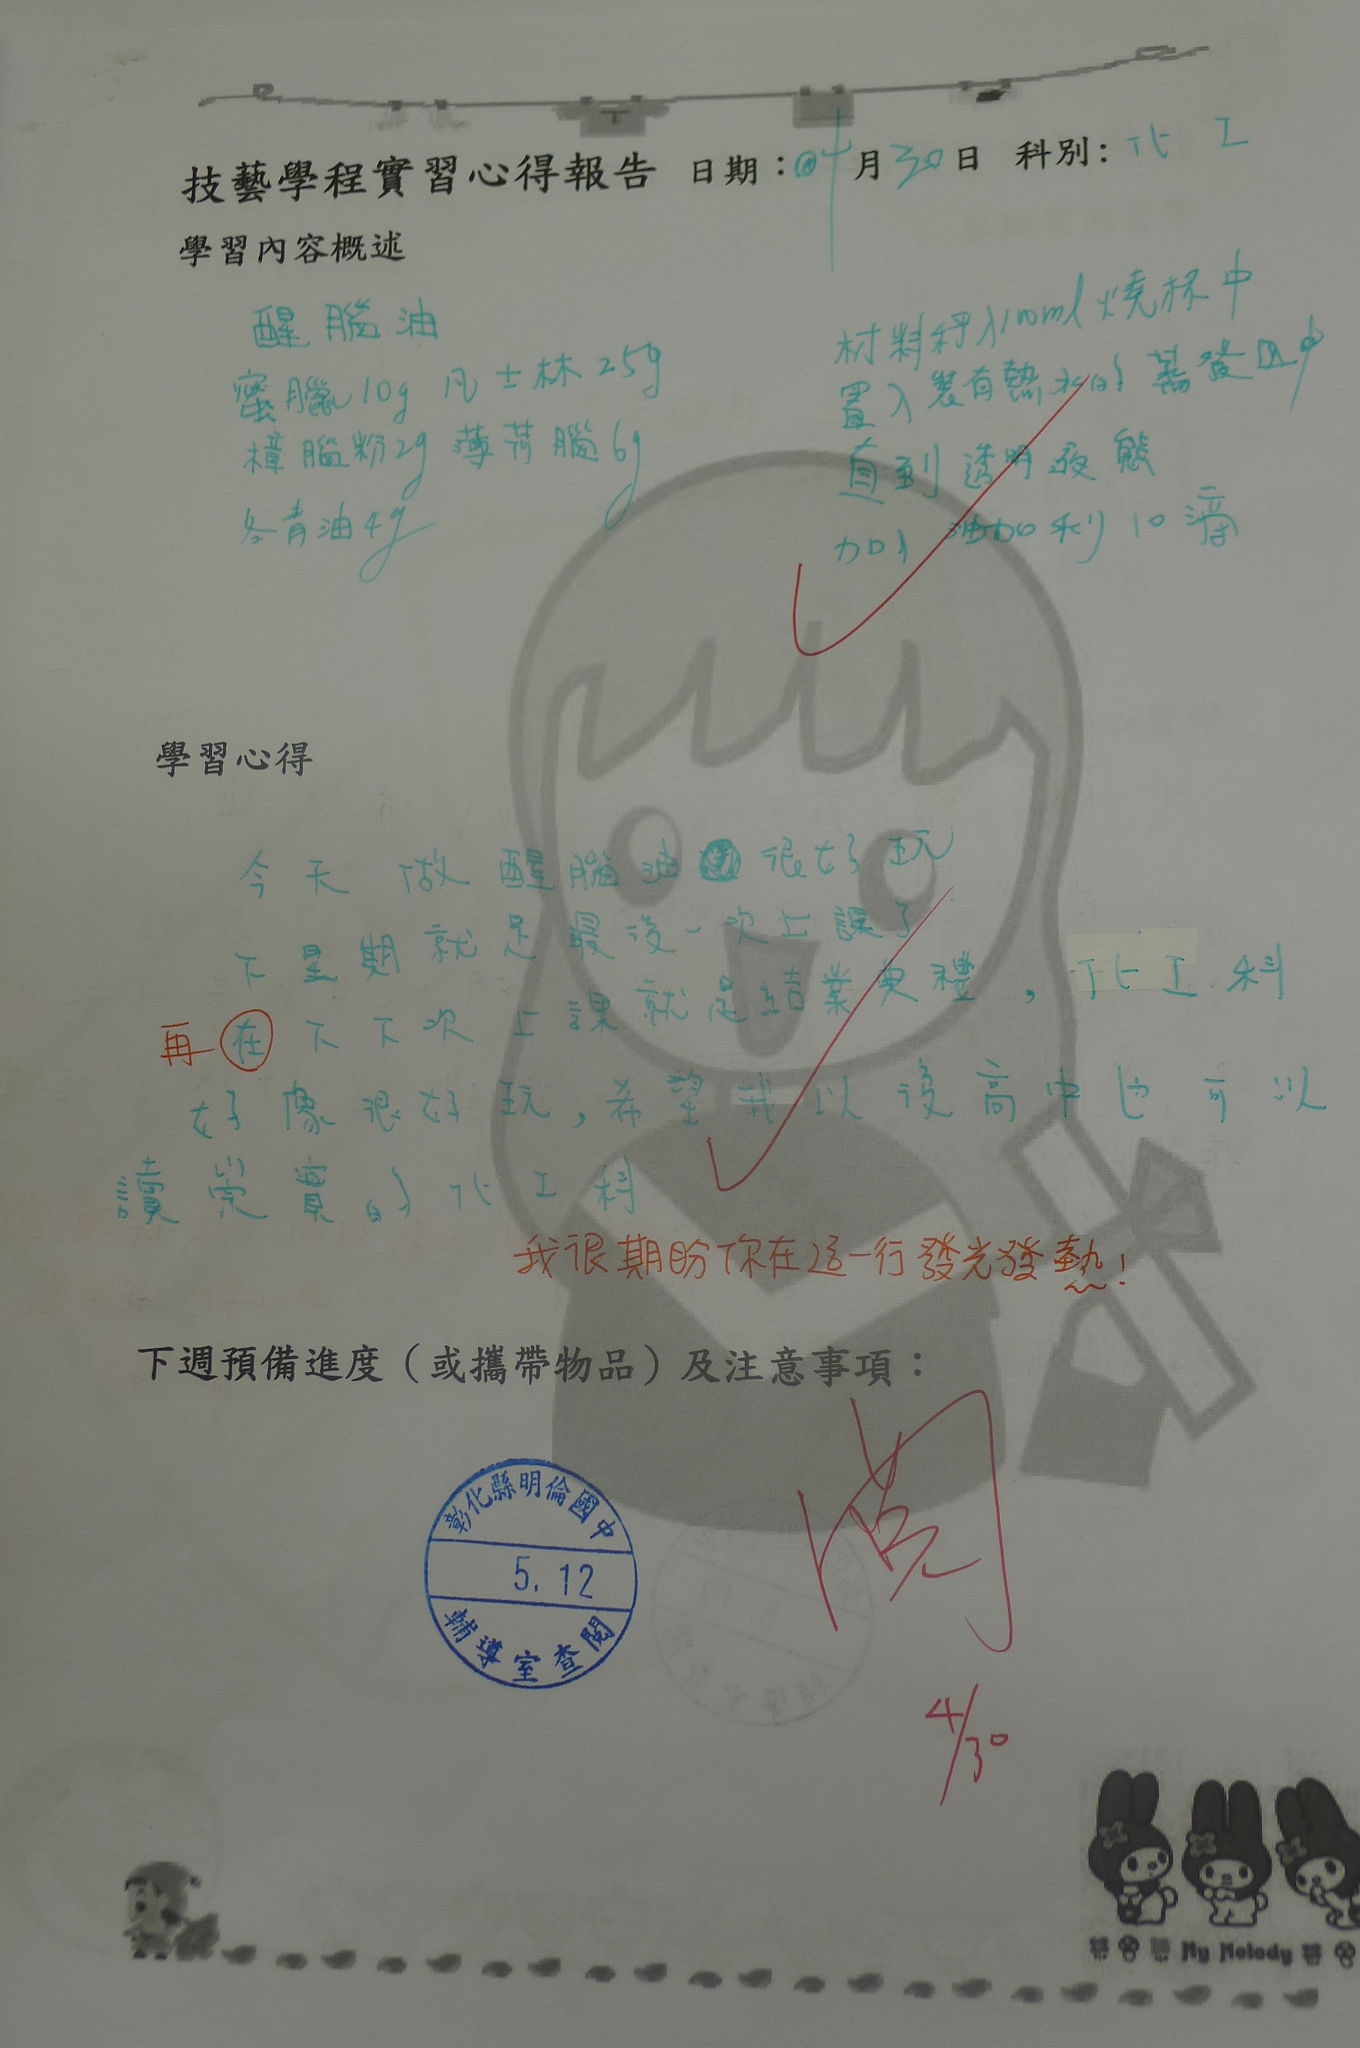 技藝學程實習心得報告 日期：04月30日 科別：化工
學習內容概述
醒腦油
蜜臘10g 凡士林25g
樟腦粉2g 薄荷腦6g
冬青油4g
材料秤入100ml燒杯中
置入裝有熱水的蒸發皿中
直到透明液態
加入油加利10滴
學習心得
今天做醒腦油很好玩
下星期就是最後一次上課了
再 在下下次上課就是結業典禮，化工科
好像很好玩，希望我以後高中也可以
讀崇實的化工科
我很期盼你在這一行發光發熱！
下週預備進度（或攜帶物品）及注意事項：
彰化縣明倫國中
5.12
輔導室查閱
4/30
My Melody